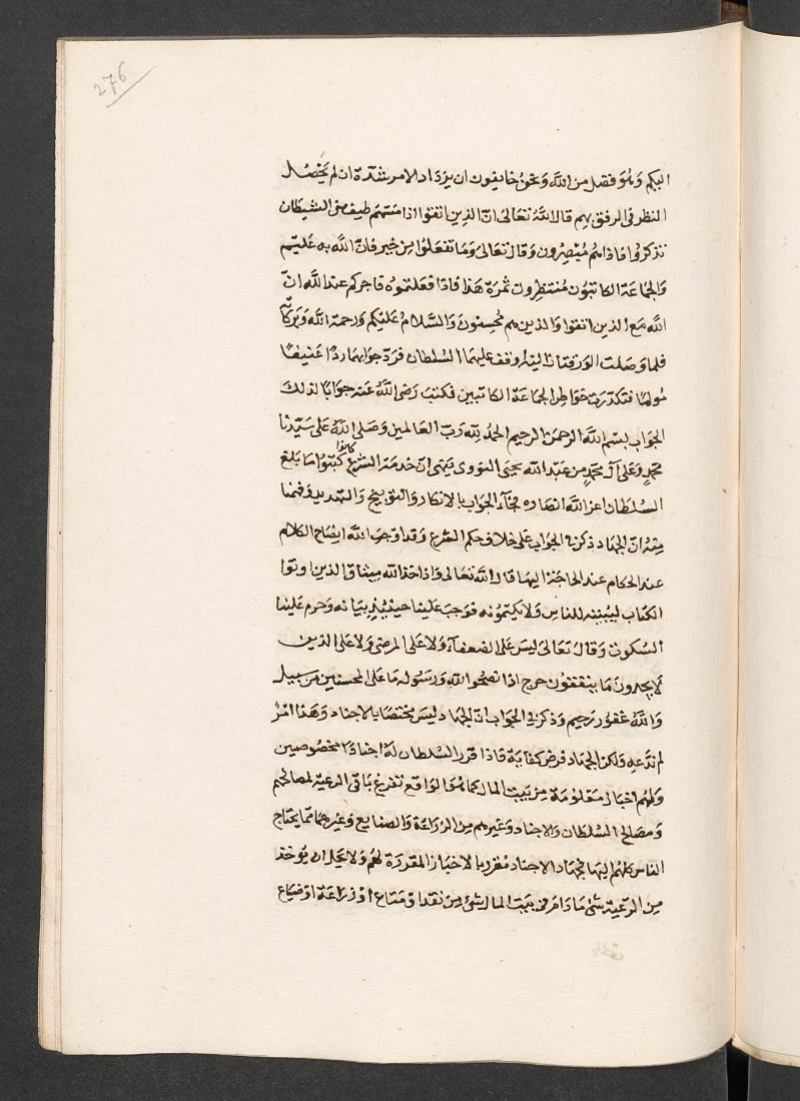 276
اليكم وهو فضل من الله ونحن خايفون ان يزداد الامر شدة ان لم يحصل
النظر في الرفق بهم قال الله تعالى ان الذين اتقوا اذا مسهم طيف من الشيطان
تذكروا فاذا هم مبصرون وقال تعالى وما تفعلوا من خير فان الله به عليم
والجماعة الكاتبون منتظرون ثمرة هذا فاذا فعلتموه فاجركم عند الله ان
الله مع الذين اتقوا والذين هم محسنون والسلام عليكم ورحمة الله وبركاته
فلما وصلت الورقتان اليه وقف عليهما السلطان فرد جوابهما ردا عنيفا
مولما فتكدرت خواطر الجماعة الكاتبين فكتب رضى الله عنه جوابا لذلك
الجواب بسم الله الرحمن الرحيم الحمد لله رب العالمين وصلى الله على سيدنا
محمد وعلى آل محمد من عبد الله يحيى النووى ينهى ان خدمة الشرع كانوا كتبوا ما بلغ
السلطان اعز الله انصاره فجآء الجواب بالانكار والتوبيخ والتهديد وفهمنا
منه ان الجهاد ذكر في الجواب على خلاف حكم الشرع وقد اوجب الله ايضاح الكلام
عند الحكام عند الحاجة اليها قال الله تعالى واذ اخذ الله ميثاق الذين اوتوا
الكتاب ليبيننه للناس ولا يكتمونه فوجب علينا حينئذ بيانه وحرم علينا
السكوت وقال تعالى ليس على الضعفآء ولا على المرضى ولا على الذين
لا يجدون ما ينفقون حرج اذا نصحوا لله ورسوله ما على المحسنين من سبيل
والله غفور رحيم وذكر في الجواب ان الجهاد ليس مختصا بالاجناد وهذا امر
لم ندعه ولكن الجهاد فرض كفاية فاذا قرر السلطان له اجنادا مخصوصين
ولهم اخباز معلومة من بيت المال كما هو الواقع تفرغ باقى الرعية لمصالحهم
ومصالح السلطان والاجناد وغيرهم من الزراعة والصنايع وغيرهما مما يحتاج
الناس كلهم اليها فجهاد الاجناد مقرر بالاخباز المقررة لهم ولا يحل ان يوخذ
من الرعية شئ ما دام في بيت المال شئ من نقد او متاع او زراعة او ضياع